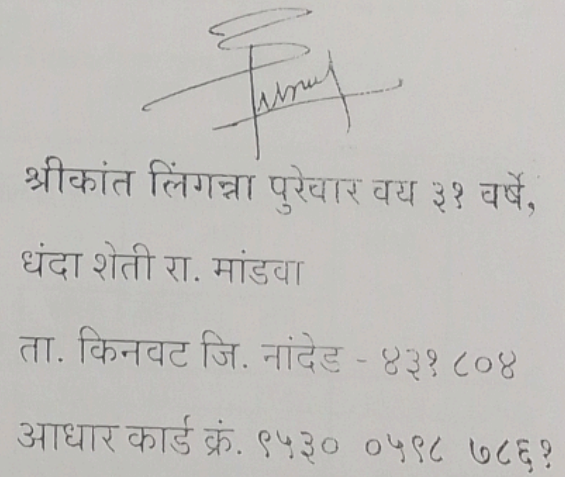 श्रीकांत लिंगन्ना पुरेवार वय ३१ वर्षे,
धंदा शेती रा. मांडवा
ता. किनवट जि. नांदेड - ४३१ ८०४
आधार कार्ड क्रं. ९५३० ०५९८ ७८६१